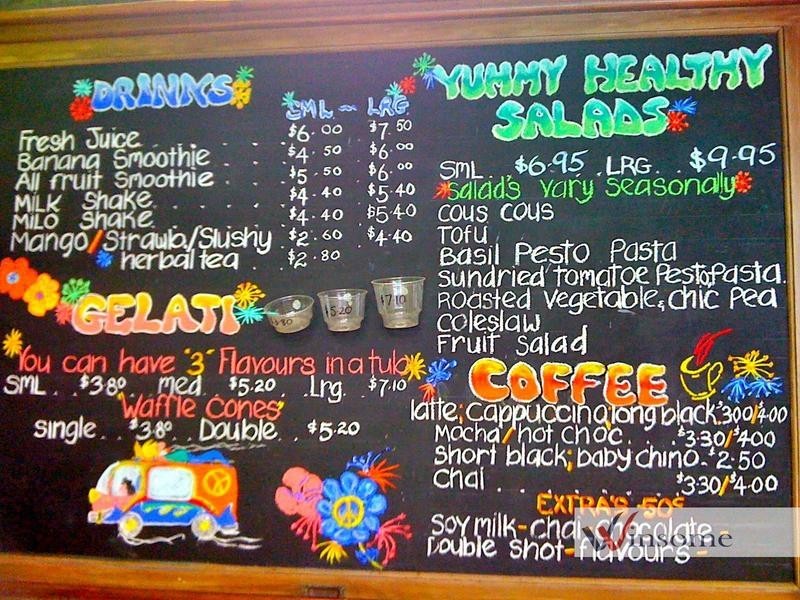 DRINKS
SML ~ LRG
Fresh Juice . . . . $6.00 $7.50
Banana Smoothie . . $4.50 $6.00
All fruit Smoothie . . $5.50 $6.00
MILK Shake . . . $4.40 $5.40
MILO Shake . . . $4.40 $5.40
Mango/Strawb/Slushy $2.60 $4.40
herbal tea . $2.80
GELATI
$3.80 $5.20 $7.10
You can have "3" Flavours in a tub
SML . $3.80 med $5.20 Lrg. $7.10
Waffle Cones
Single . . $3.80 Double . . $5.20
YUMMY HEALTHY
SALADS
SML $6.95 . LRG . $9.95
Salad's vary seasonally
cous cous
Tofu
Basil Pesto Pasta
Sundried tomatoe Pesto Pasta.
Roasted Vegetable, chic pea
Coleslaw
Fruit Salad
COFFEE
latte, cappuccino, long black. 3.00/4.00
Mocha/hot choc. . . $3.30/$4.00
Short black; baby chino. $2.50
Chai . . . . . $3.30/$4.00
EXTRA'S .50¢
Soy milk-chai-chocolate-
Double Shot-flavours-
Winsome